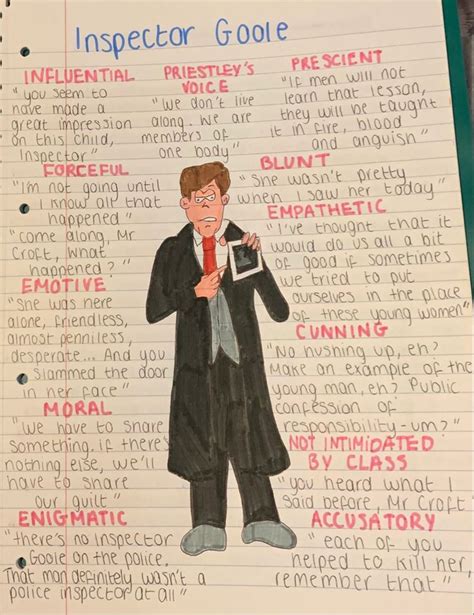 Inspector Goole
INFLUENTIAL
"you seem to
have made a
great impression
on this child,
Inspector"
PRIESTLEY'S
VOICE
"We don't live
along. We are
members of
one body"
PRESCIENT
"If men will not
learn that lesson,
they will be taught
it in fire, blood
and anguish"
FORCEFUL
"I'm not going until
I know all that
happened"
"come along, Mr
Croft, What
happened?"
BLUNT
"She wasn't pretty
when I saw her today"
EMPATHETIC
"I've thought that it
would do us all a bit
of good if sometimes
we tried to put
ourselves in the place
of these young women"
EMOTIVE
"She was here
alone, friendless,
almost penniless,
desperate... And you
slammed the door
in her face"
CUNNING
"No hushing up, eh?
Make an example of the
young man, eh? Public
confession of
responsibility-um?"
MORAL
"We have to share
something. if there's
nothing else, we'll
have to share
our guilt"
NOT INTIMIDATED
BY CLASS
"you heard what I
said before, Mr Croft."
ENIGMATIC
"there's no Inspector
Goole on the police.
That man definitely wasn't a
police inspector at all"
ACCUSATORY
"each of you
helped to kill her,
remember that"